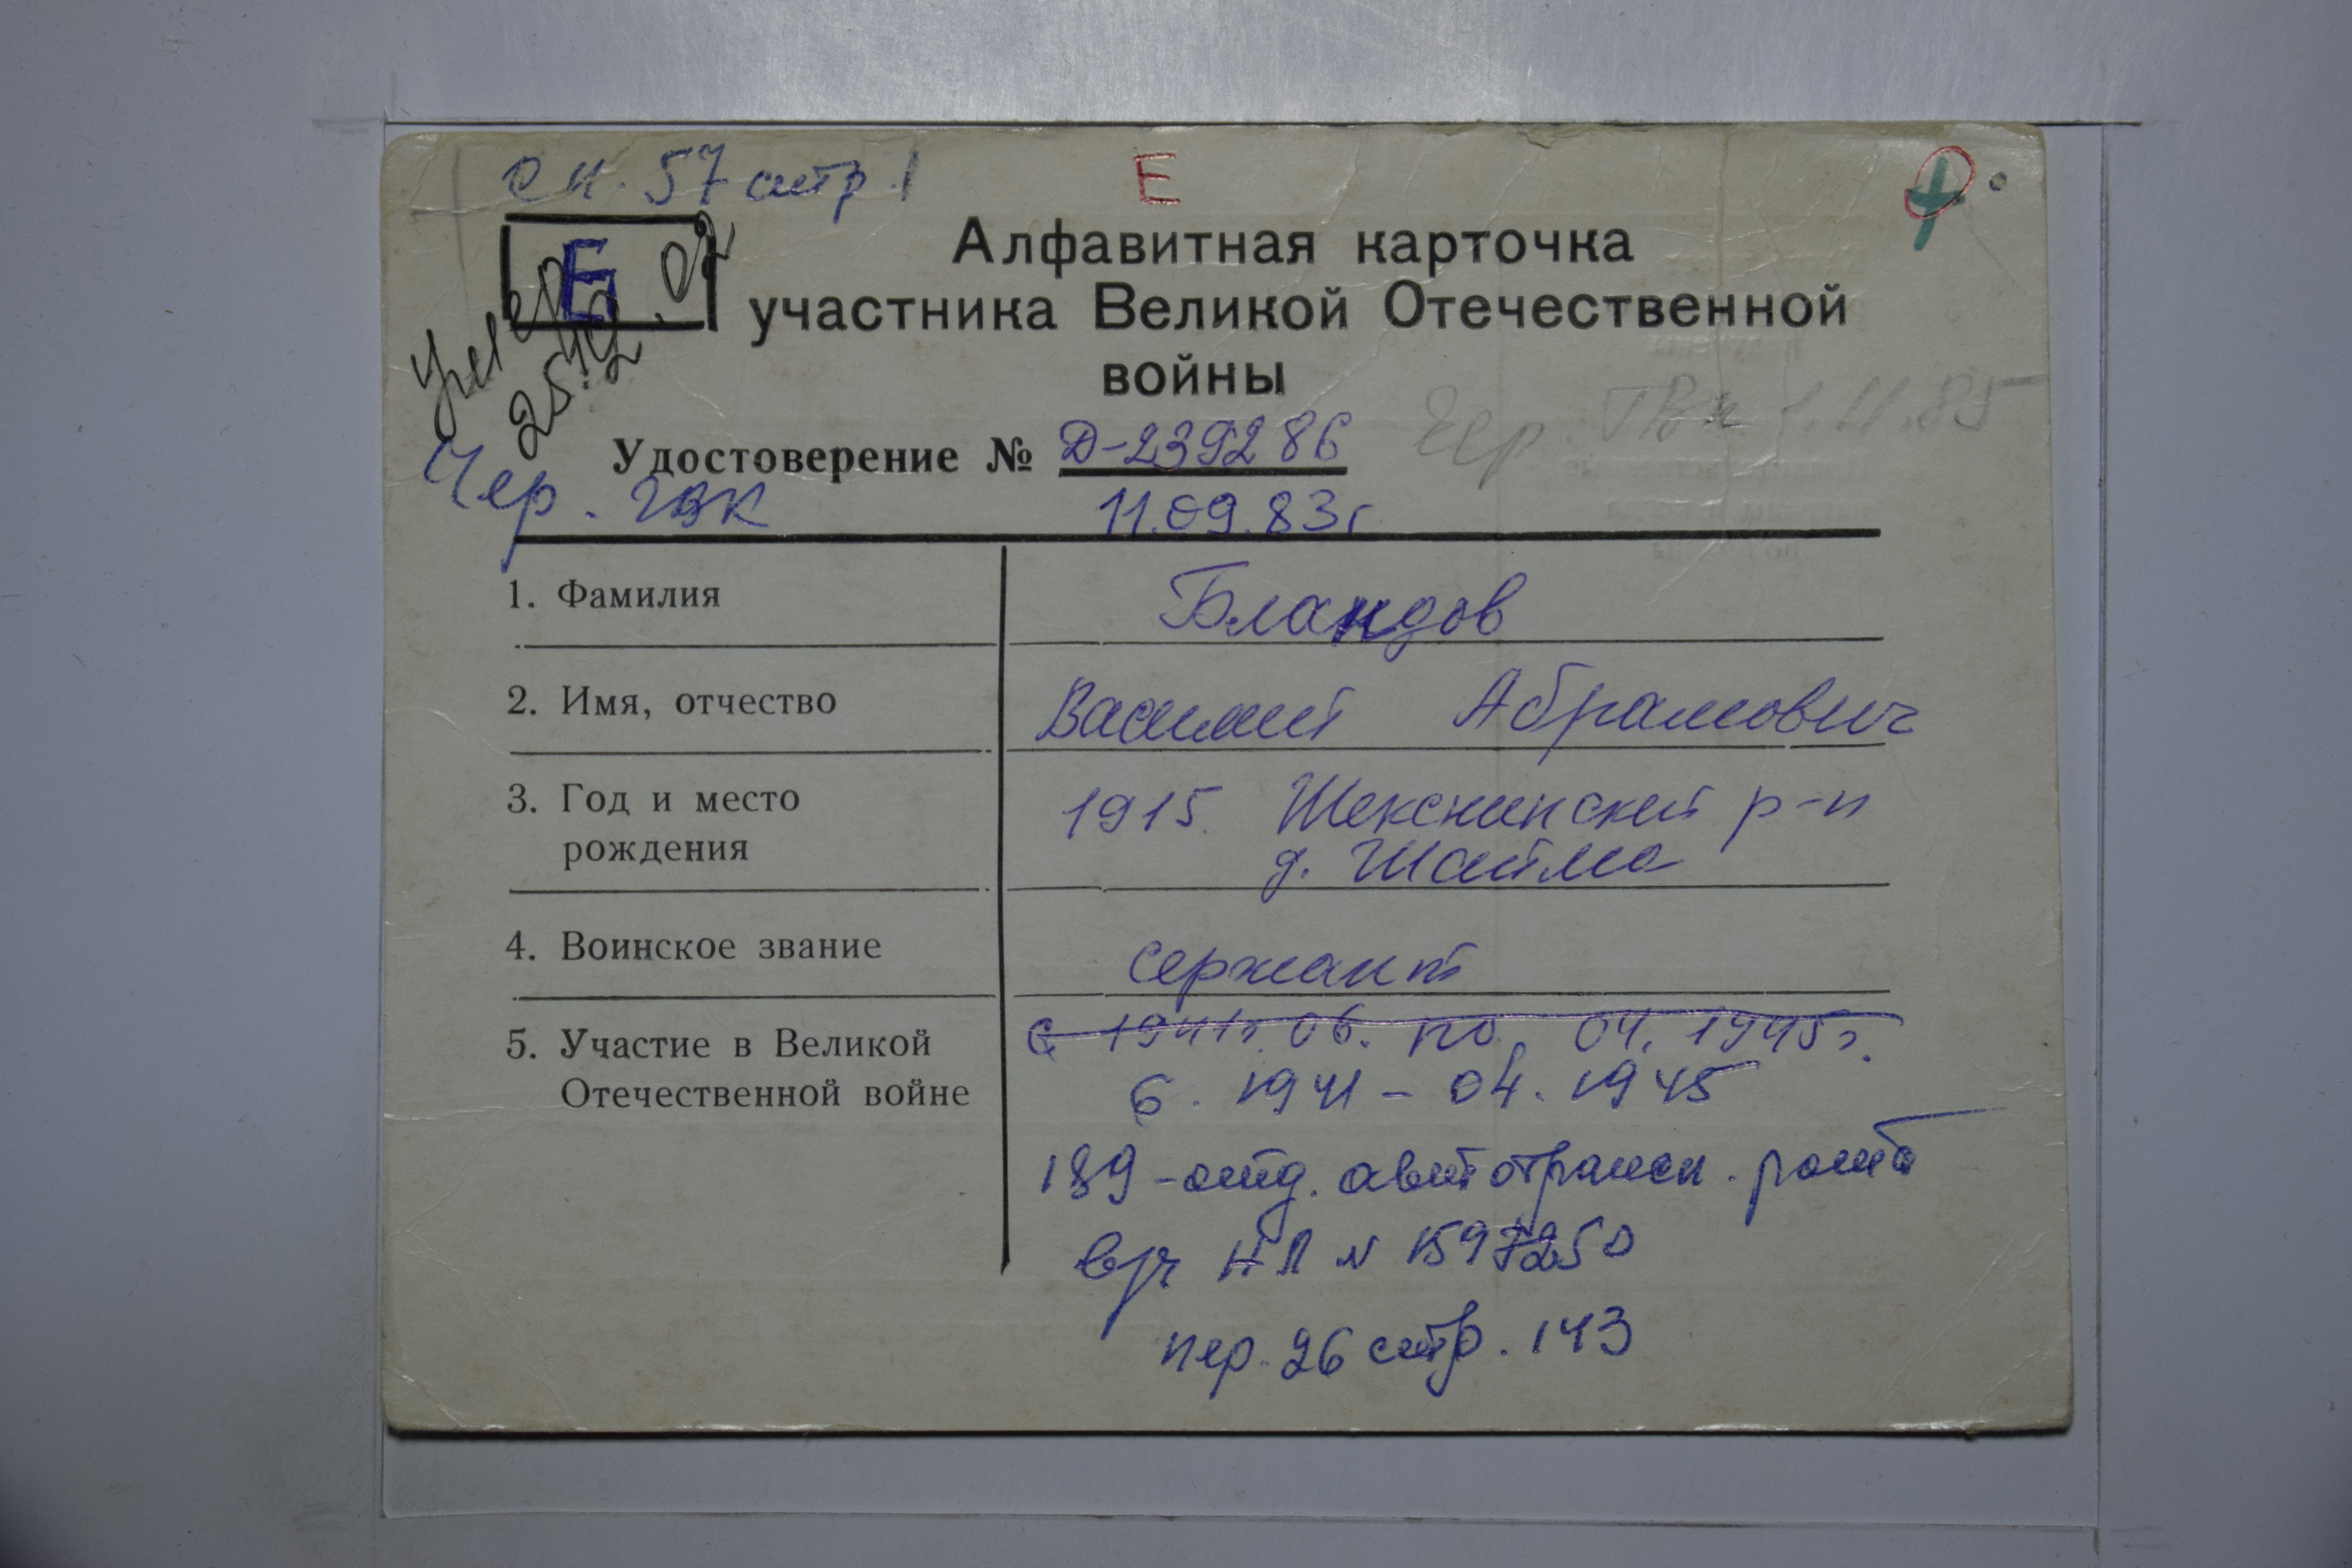 сп. 57 стр. 1
Е
Б
Умер
25.12.02
Алфавитная карточка
участника Великой Отечественной
войны
Удостоверение № Д-239286
Чер. ГВК 1.11.85
Чер. ГВК
11.09.83г
1. Фамилия Бландов
2. Имя, отчество Василий Абрамович
3. Год и место 1915. Шекснинский р-н
рождения д. Шайма
4. Воинское звание сержант
5. Участие в Великой С 1941г. 06. по 04. 1945г.
Отечественной войне 6. 1941 - 04. 1945
189 - отд. автотрансп. рота
вруч Н Л № 1597250
пер. 26 стр. 143